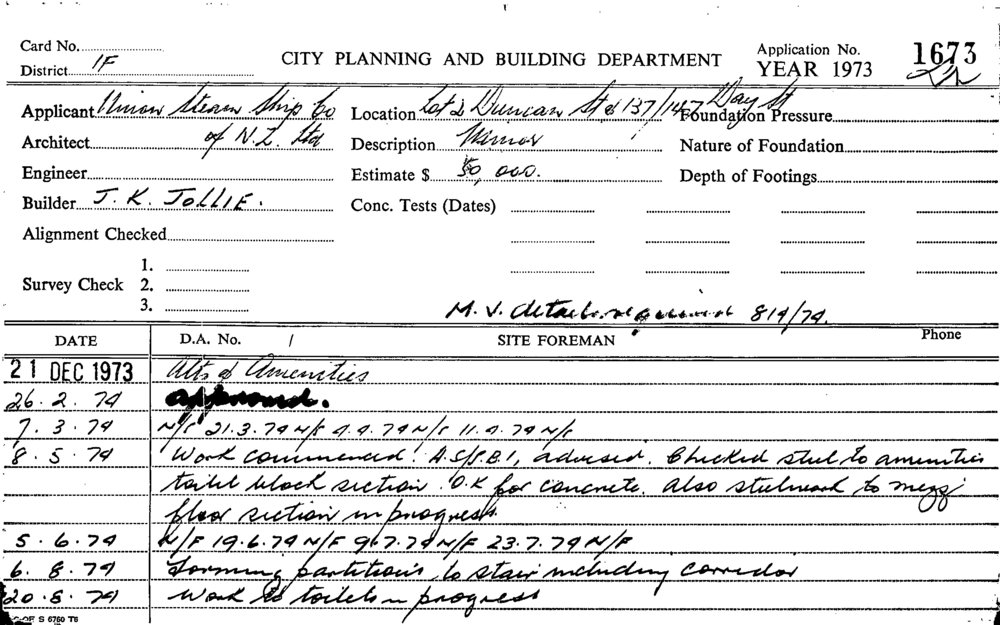 Card No.
District 1F
CITY PLANNING AND BUILDING DEPARTMENT
Application No. 1673
YEAR 1973
Applicant Union Steam Ship Co
Location Lot 2 Duncan St & 137/147 Day St
Foundation Pressure
Architect of N.Z. Ltd
Description Minor
Nature of Foundation
Engineer
Estimate $ 50,000.
Depth of Footings
Builder J. K. JOLLIE.
Conc. Tests (Dates)
Alignment Checked
Survey Check
1.
2.
3.
M.V. details required 8/4/74.
DATE D.A. No. / SITE FOREMAN Phone
21 DEC 1973 Alts & Amenities
26.2.74 approved.
7.3.74 N/S 21.3.74 N/S 4.4.74 N/S 11.4.74 N/S
8.5.74 Work commenced. A.S/S.B.I, advised. Checked steel to amenities
toilet block section. O.K for concrete. Also steelwork to mezz
floor section in progress.
5.6.74 N/F 19.6.74 N/F 9.7.74 N/F 23.7.74 N/F
6.8.74 Forming partitions to stair including corridor
20.8.74 Work to toilets in progress
S 6760 T6